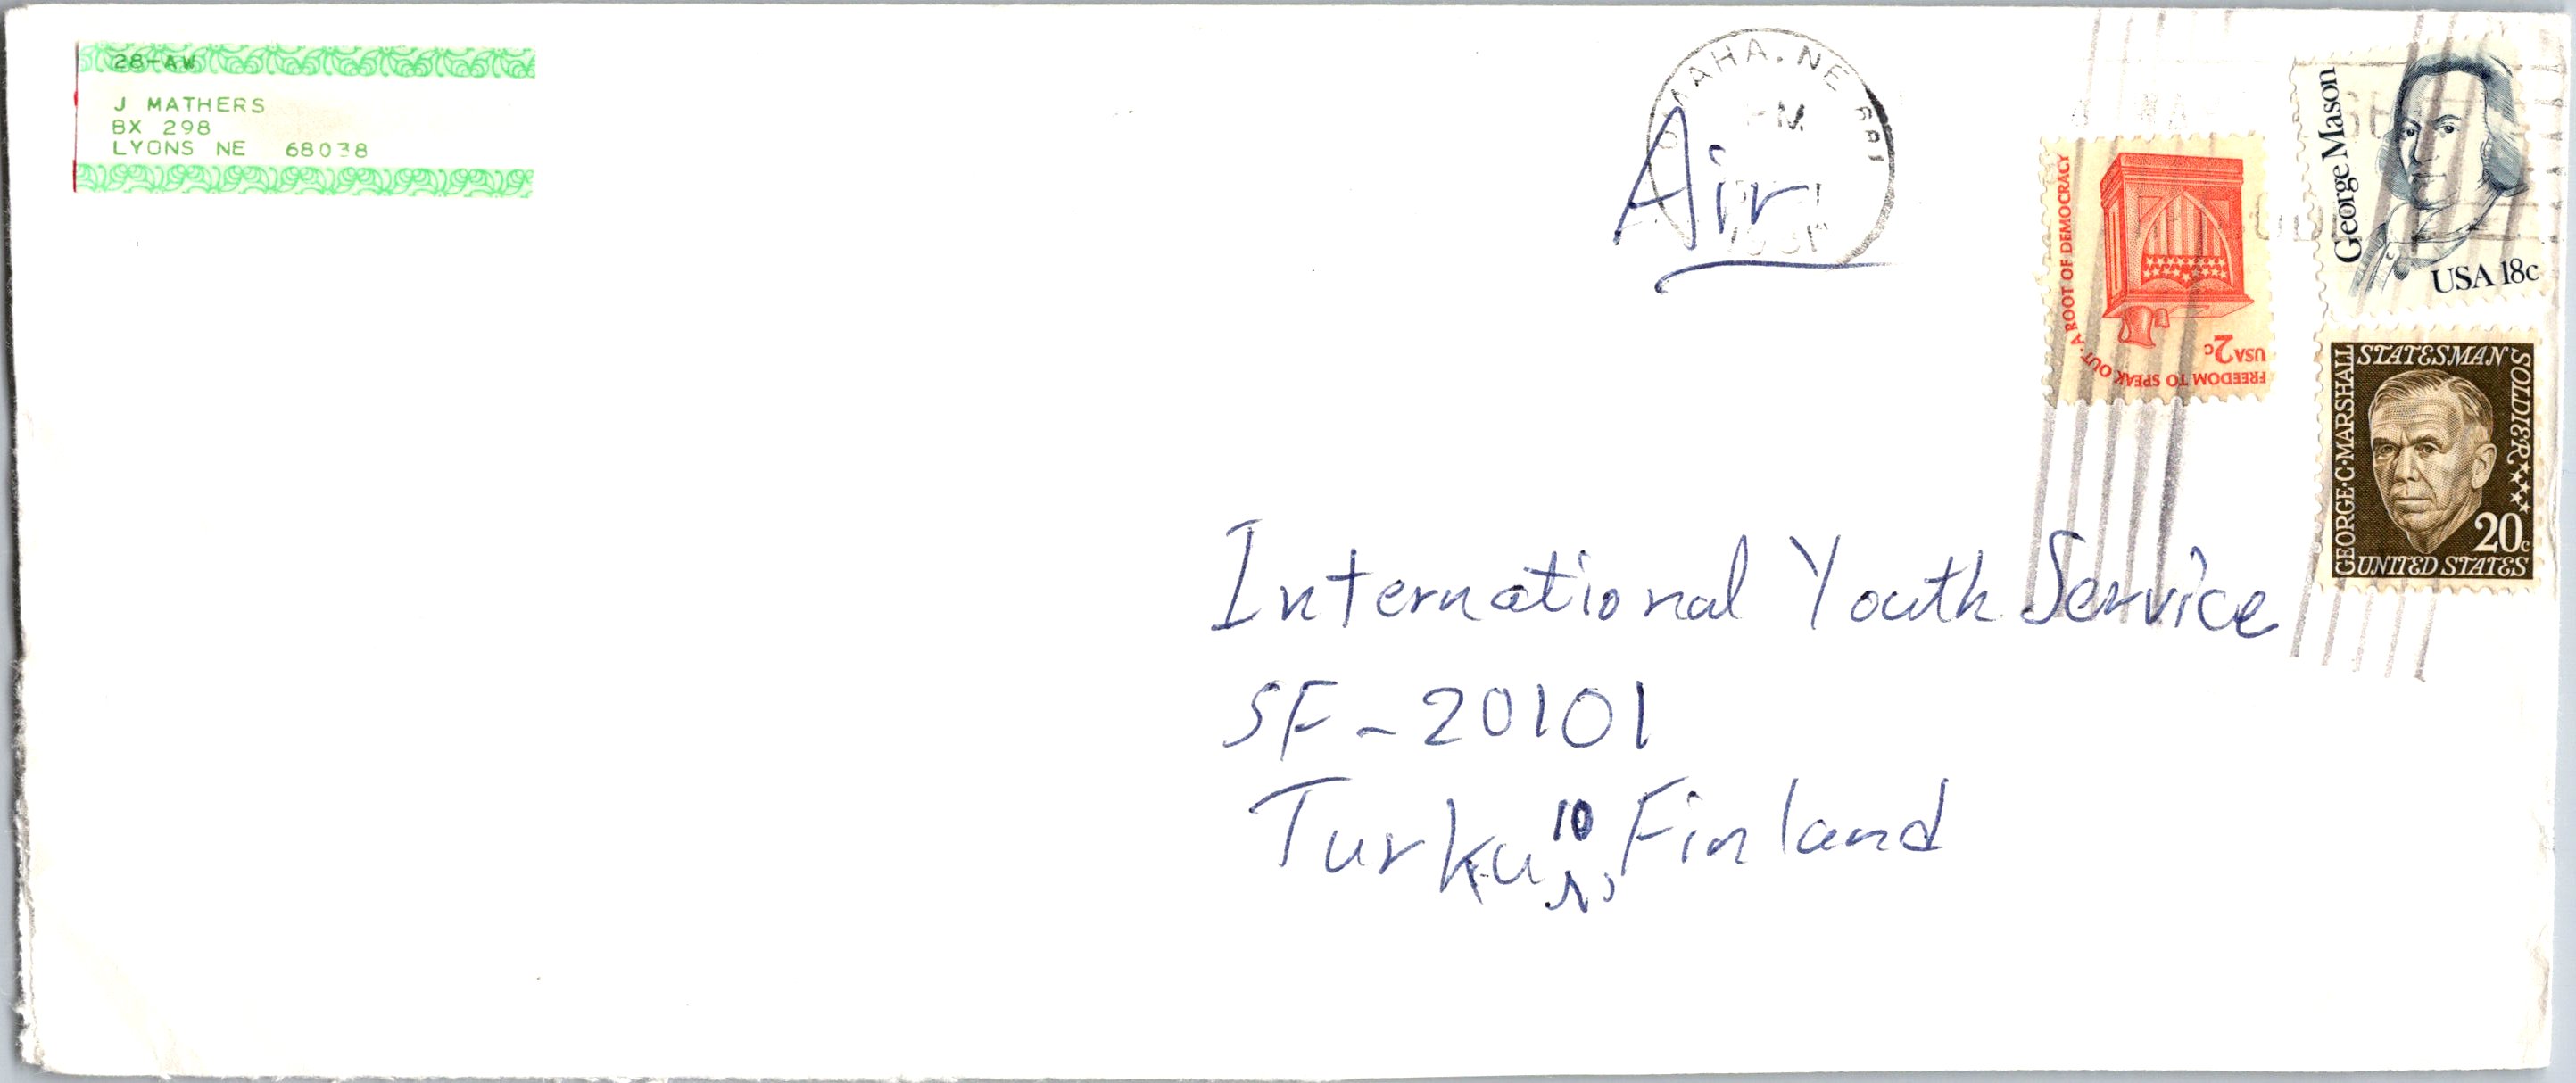 28-AW
J MATHERS
BX 298
LYONS NE 68038
OMAHA, NE 681
PM
1981
Air
George Mason
USA 18c
FREEDOM TO SPEAK OUT · A ROOT OF DEMOCRACY
USA 2c
GEORGE·C·MARSHALL
STATESMAN
SOLDIER
20c
UNITED STATES
International Youth Service
SF-20101
Turku 10, Finland